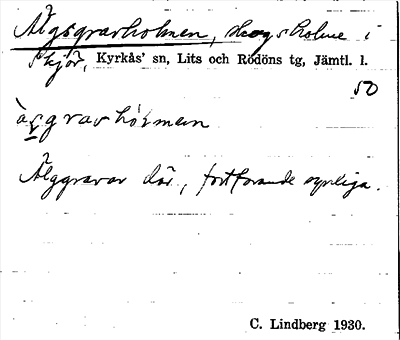 Älgsgravholmen, skogsholme i
skjör, Kyrkås' sn, Lits och Rödöns tg, Jämtl. l.
50
Älggravar där, fortfarande synliga.
C. Lindberg 1930.